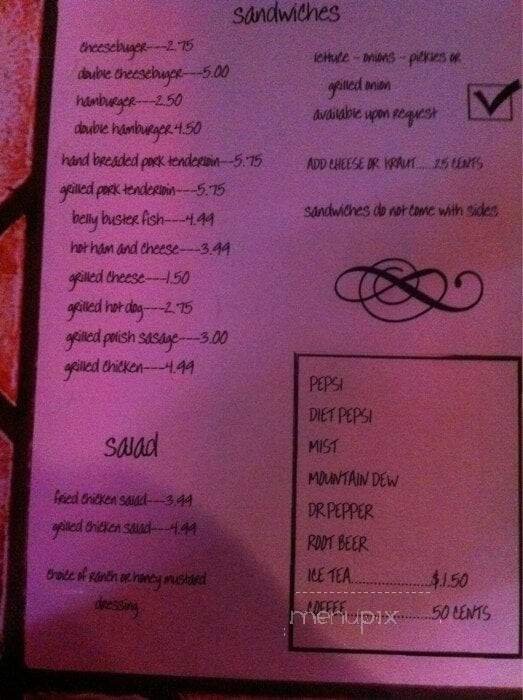 sandwiches
cheesebuger---2.75
double cheesebuyer---5.00
hamburger---2.50
double hamburger-4.50
hand breaded pork tenderloin---5.75
grilled pork tenderloin---5.75
belly buster fish---4.99
hot ham and cheese---3.99
grilled cheese---1.50
grilled hot dog---2.75
grilled polish sasage---3.00
grilled chicken---4.99
salad
fried chicken salad---3.99
grilled chicken salad---4.99
choice of ranch or honey mustard
dressing
lettuce - onions - pickles or
grilled onion
available upon request
ADD CHEESE OR KRAUT.....25 CENTS
sandwiches do not come with sides
PEPSI
DIET PEPSI
MIST
MOUNTAIN DEW
DR PEPPER
ROOT BEER
ICE TEA......................$1.50
COFFEE......................50 CENTS
menupix